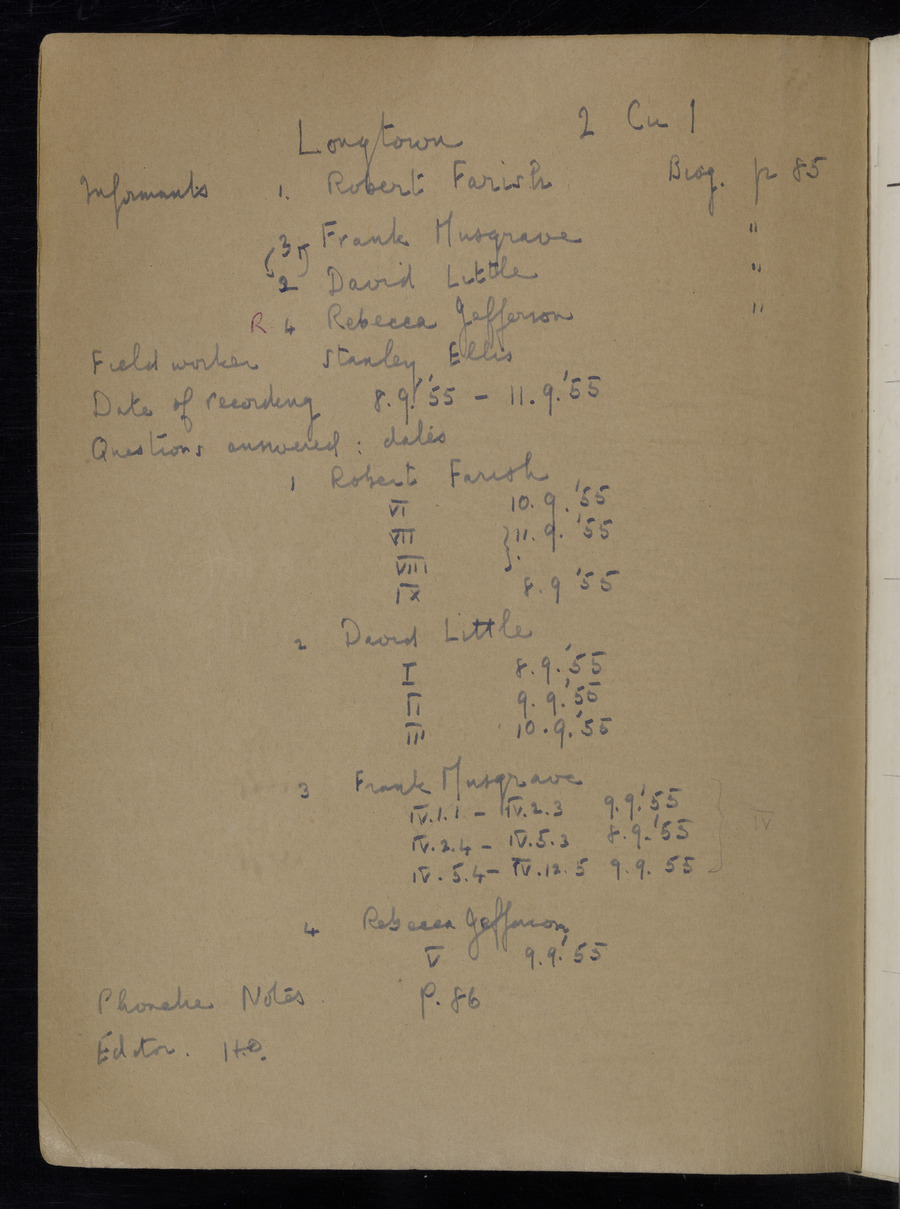 Longtown 2 Cu 1
Informants 1. Robert Farish Biog. p 85
3 Frank Musgrave "
2 David Little "
R 4 Rebecca Jefferson "
Field worker Stanley Ellis
Date of recording 8.9.'55 - 11.9.'55
Questions answered : dates
1 Robert Farish
VI 10.9.'55
VII } 11.9.'55
VIII
IX 8.9 '55
2 David Little
I 8.9.'55
II 9.9.'55
III 10.9.'55
3 Frank Musgrave
IV.1.1 - IV.2.3 9.9.'55
IV.2.4 - IV.5.3 8.9.'55 } IV
IV.5.4 - IV.12.5 9.9.55
4 Rebecca Jefferson
V 9.9.'55
Phonetic Notes P. 86
Editor. H.O.